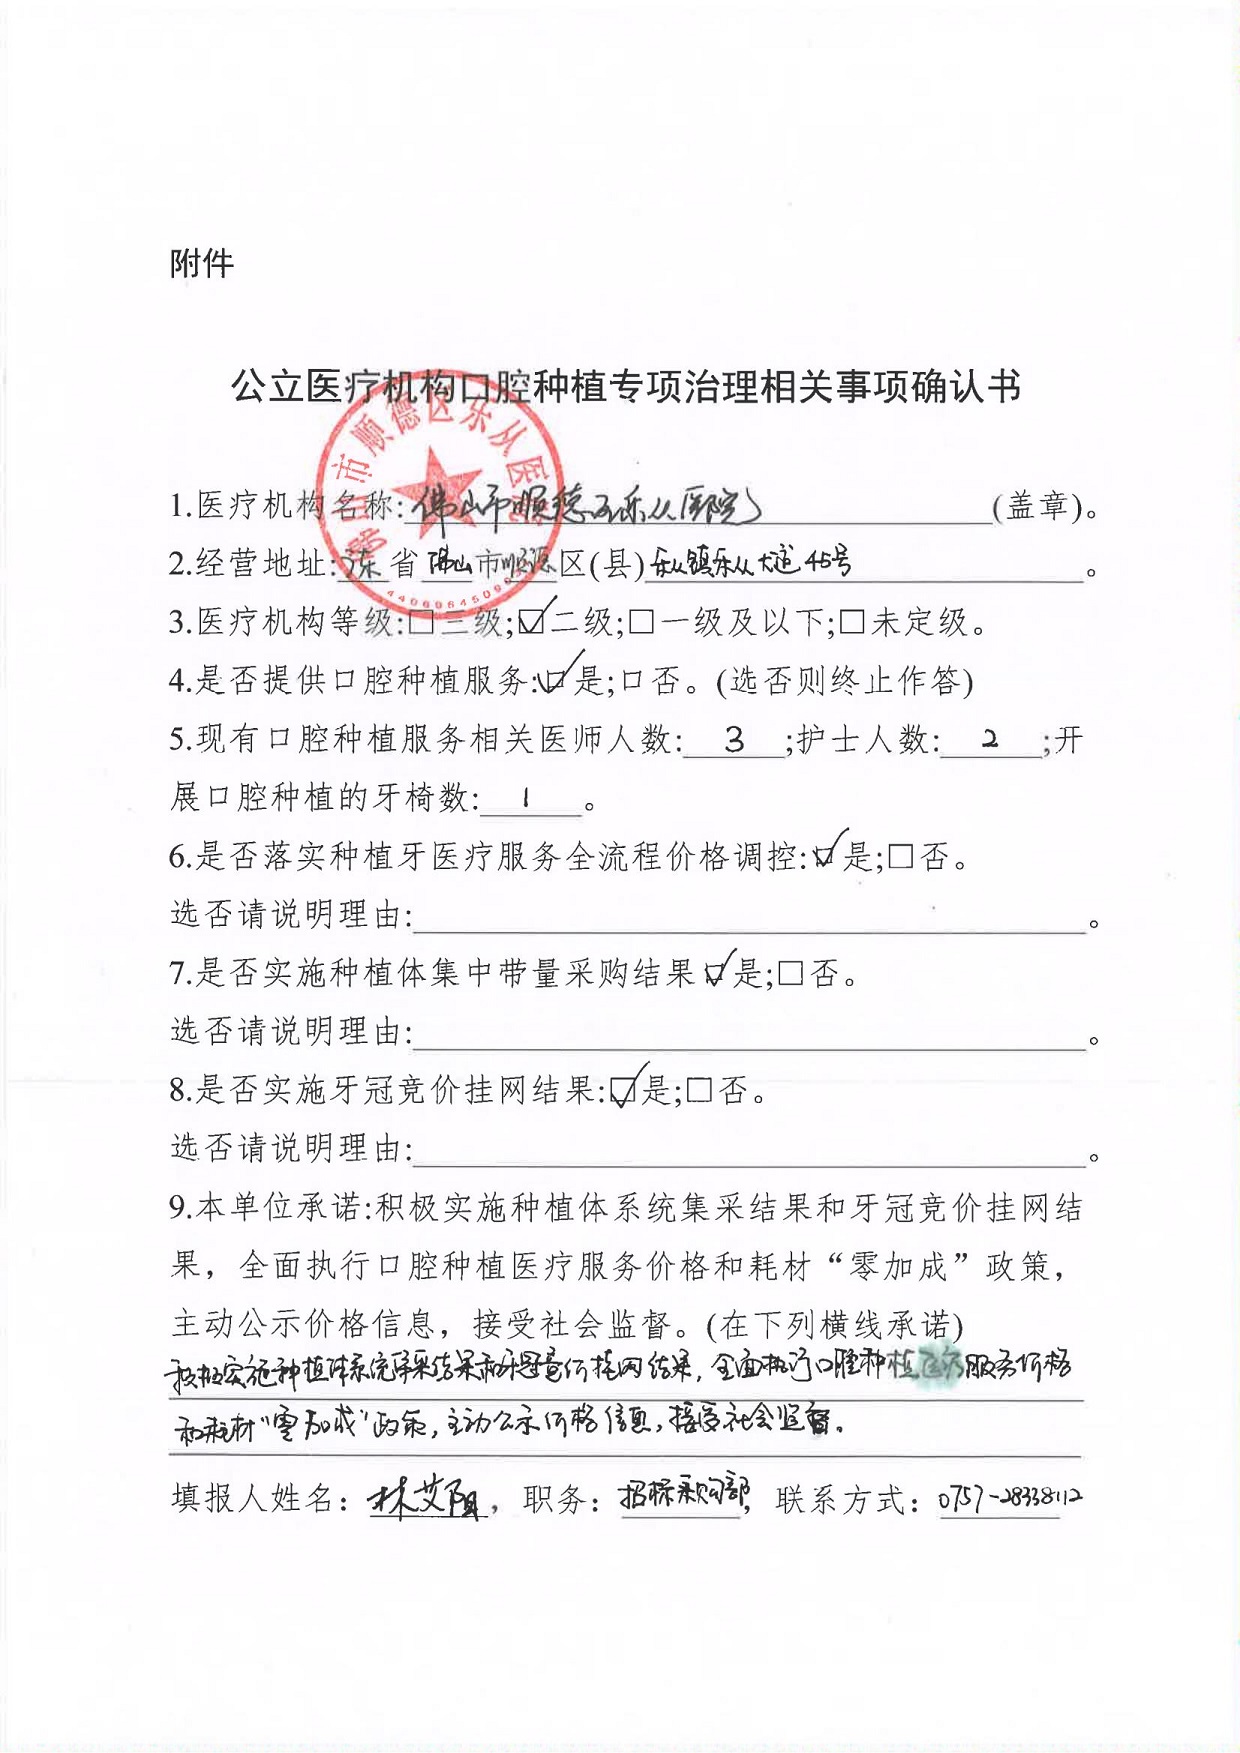 附件
公立医疗机构口腔种植专项治理相关事项确认书
佛山市顺德区乐从医院
1.医疗机构名称:佛山市顺德区乐从医院(盖章)。
2.经营地址:广东省佛山市顺德区(县)乐从镇乐从大道45号。
3.医疗机构等级:□三级;☑二级;□一级及以下;□未定级。
4.是否提供口腔种植服务:☑是;口否。(选否则终止作答)
5.现有口腔种植服务相关医师人数:3;护士人数:2;开
展口腔种植的牙椅数:1。
6.是否落实种植牙医疗服务全流程价格调控:☑是;□否。
选否请说明理由:。
7.是否实施种植体集中带量采购结果☑是;□否。
选否请说明理由:。
8.是否实施牙冠竞价挂网结果:☑是;□否。
选否请说明理由:。
9.本单位承诺:积极实施种植体系统集采结果和牙冠竞价挂网结
果，全面执行口腔种植医疗服务价格和耗材“零加成”政策，
主动公示价格信息，接受社会监督。(在下列横线承诺)
积极实施种植体系统集采结果和牙冠竞价挂网结果，全面执行口腔种植医疗服务价格
和耗材“零加成”政策，主动公示价格信息，接受社会监督。
填报人姓名：林艾阳，职务：招标采购部，联系方式：0757-28338112